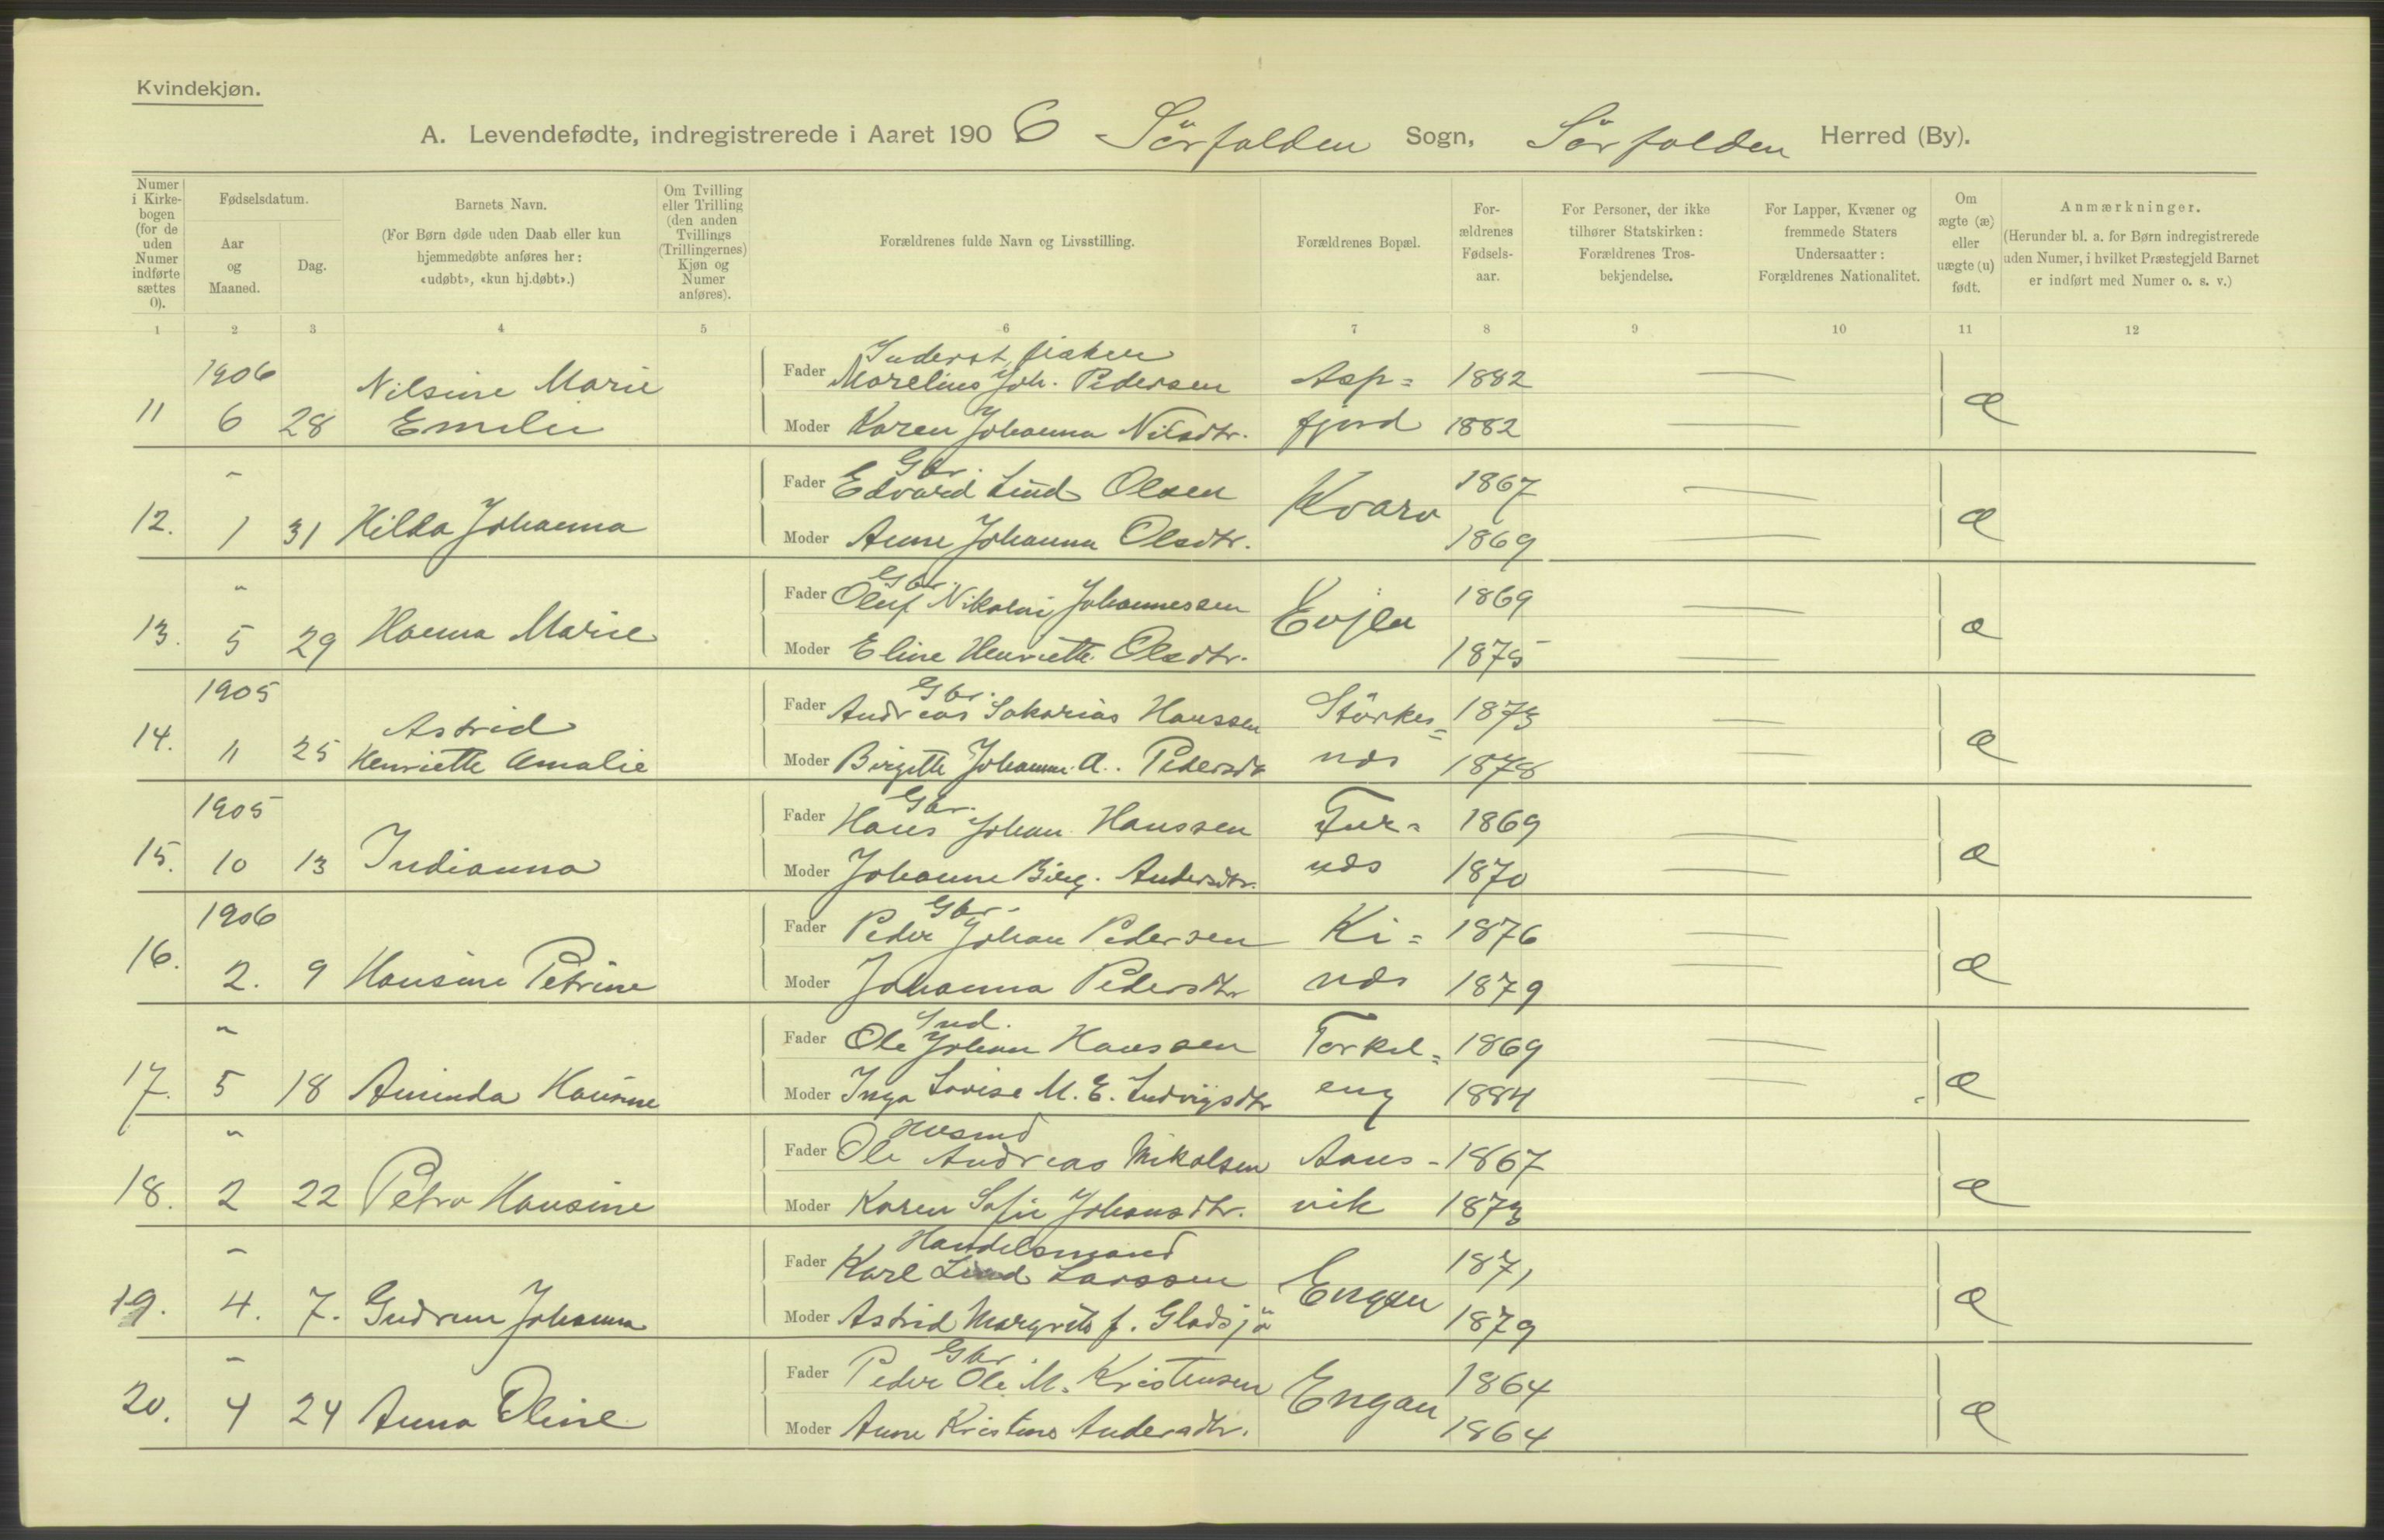 Kvindekjøn.
A. Levendefødte, indregistrerede i Aaret 1906 Sörfolden Sogn, Sörfolden Herred (By).
Numer i Kirkebogen (for de uden Numer indførte sættes 0).
Fødselsdatum.
Aar og Maaned.
Dag.
Barnets Navn.
(For Børn døde uden Daab eller kun hjemmedøbte anføres her: «udøbt», «kun hj.døbt».)
Om Tvilling eller Trilling (den anden Tvillings (Trillingernes) Kjøn og Numer anføres).
Forældrenes fulde Navn og Livsstilling.
Forældrenes Bopæl.
Forældrenes Fødselsaar.
For Personer, der ikke tilhører Statskirken: Forældrenes Trosbekjendelse.
For Lapper, Kvæner og fremmede Staters Undersaatter: Forældrenes Nationalitet.
Om ægte (æ) eller uægte (u) født.
Anmærkninger.
(Herunder bl. a. for Børn indregistrerede uden Numer, i hvilket Præstegjeld Barnet er indført med Numer o. s. v.)
1 2 3 4 5 6 7 8 9 10 11 12
Inderst, fisker
1906 Nilsine Marie Fader Morelius Joh. Pedersen Asp= 1882
11 6 28 Emilie Moder Karen Johanna Nilsdtr. fjord 1882 æ
Gbr.
" Fader Edvard Lind Olsen Kvarv 1867
12. 1 31 Hilda Johanna Moder Anne Johanna Olsdtr. 1869 æ
Gbr.
" Fader Oluf Nikolai Johannessen Evjen 1869
13. 5 29 Hanna Marie Moder Eline Henriette Olsdtr. 1875 æ
Gbr.
1905 Astrid Fader Andreas Sakarias Hanssen Störkes= 1873
14. 11 25 Henriette Amalie Moder Birgitte Johanne A. Pedersdtr nds 1878 æ
Gbr.
1905 Fader Hans Johan Hanssen Fur= 1869
15. 10 13 Indianna Moder Johanne Birg. Andersdtr. nds 1870 æ
Gbr.
1906 Fader Peder Johan Pedersen Ki= 1876
16. 2. 9 Hansine Petrine Moder Johanna Pedersdtr nds 1879 æ
Ind.
" Fader Ole Johan Hanssen Torkel= 1869
17. 5 18 Aminda Hansine Moder Inga Lovise M. E. Ludvigsdtr eng 1884 æ
Husmd
" Fader Ole Andreas Nikolsen Aans- 1867
18. 2 22 Petra Hansine Moder Karen Sofie Johansdtr. vik 1873 æ
Handelsmand
" Fader Karl Lind Larssen Engan 1871
19. 4. 7. Gudrun Johanna Moder Astrid Margrete f. Gladsjö 1879 æ
Gbr.
" Fader Peder Ole M. Kristensen Engan 1864
20. 4 24 Anna Oline Moder Anne Kristine Andersdtr. 1864 æ